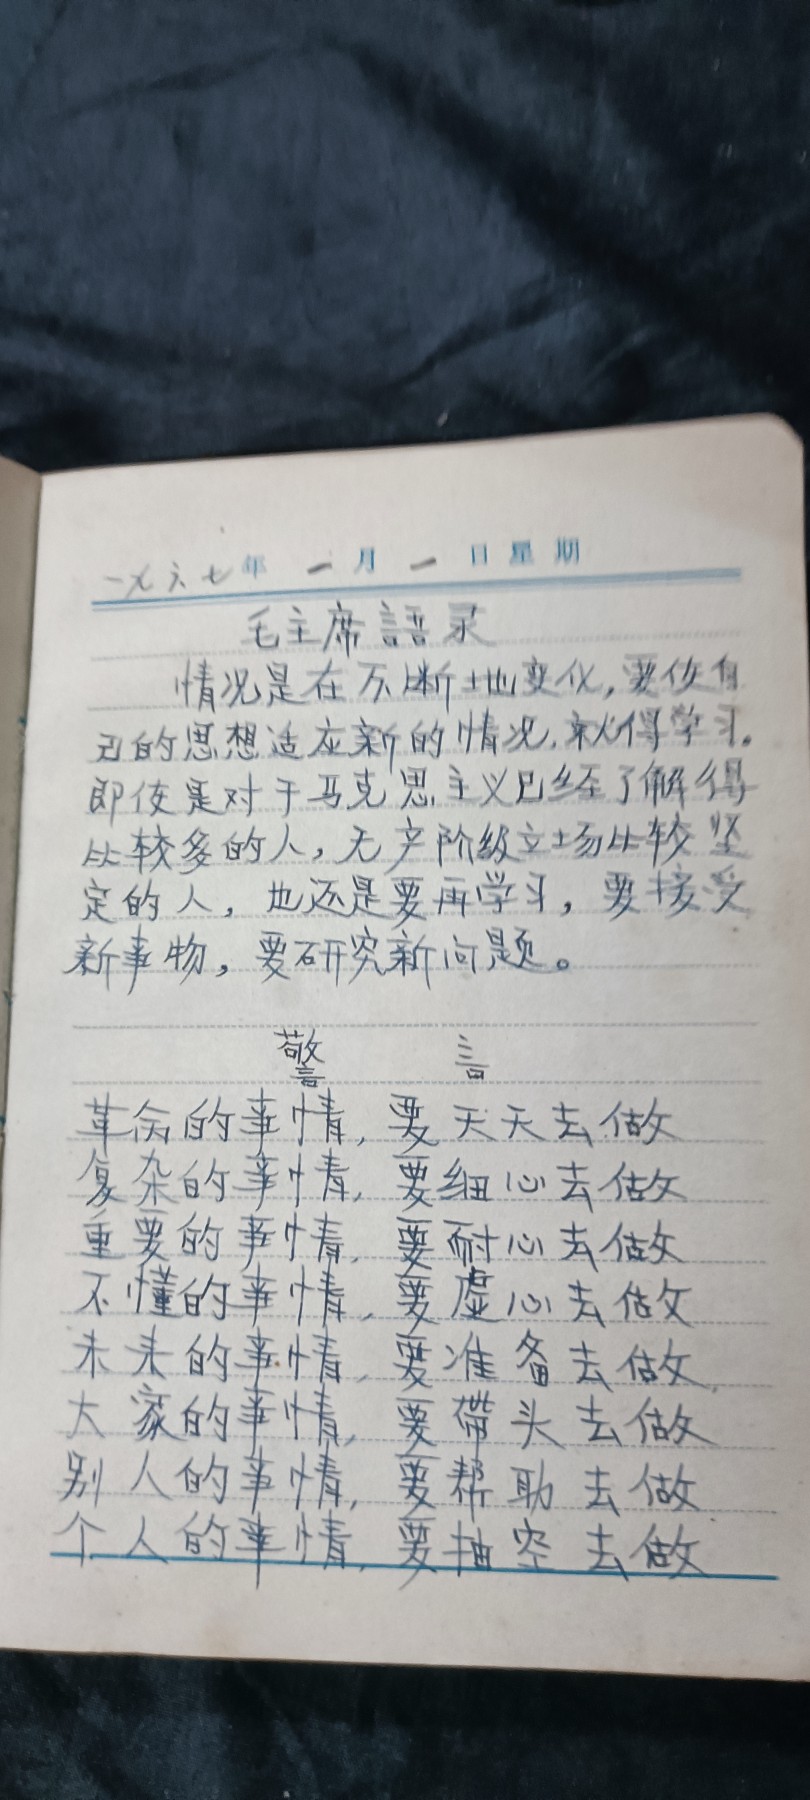 一九六七年 一月 一日星期
毛主席語录
情况是在不断地变化,要使自
己的思想适应新的情况,就得学习。
即使是对于马克思主义已经了解得
比较多的人,无产阶级立场比较坚
定的人,也还是要再学习,要接受
新事物,要研究新问题。
警言
革命的事情,要天天去做
复杂的事情,要细心去做
重要的事情,要耐心去做
不懂的事情,要虚心去做
未来的事情,要准备去做
大家的事情,要带头去做
别人的事情,要帮助去做
个人的事情,要抽空去做